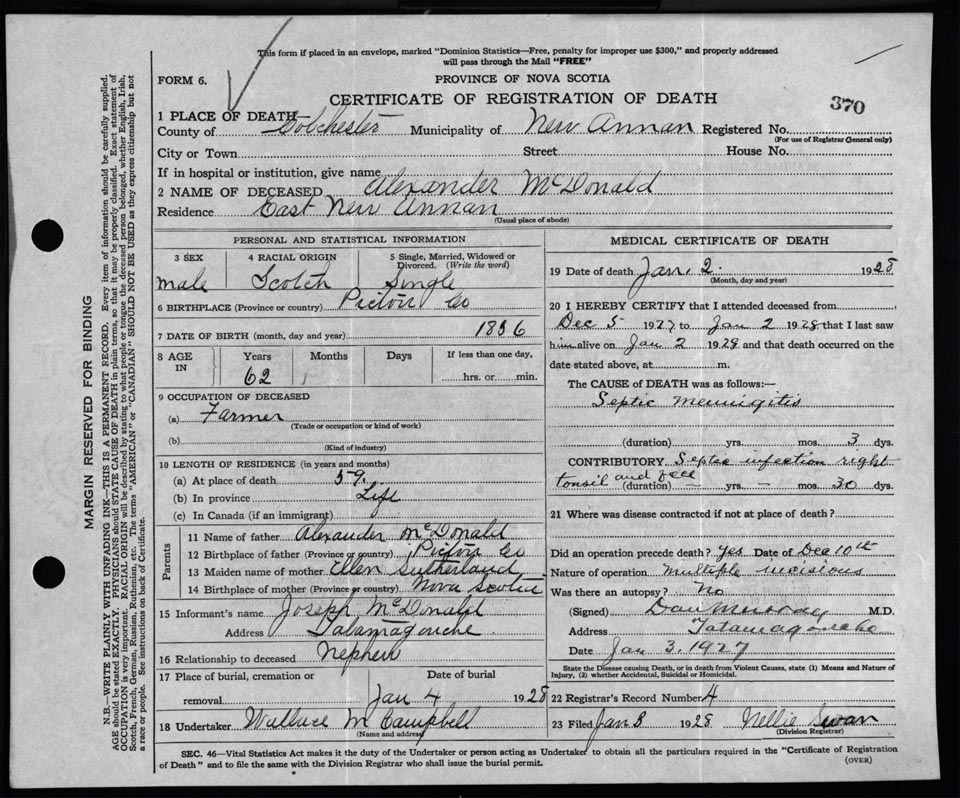 This form if placed in an envelope, marked "Dominion Statistics—Free, penalty for improper use $300," and properly addressed
will pass through the Mail "FREE"
FORM 6.
PROVINCE OF NOVA SCOTIA
CERTIFICATE OF REGISTRATION OF DEATH
370
1 PLACE OF DEATH
County of Colchester Municipality of New Annan Registered No.
(For use of Registrar General only)
City or Town Street House No.
If in hospital or institution, give name
2 NAME OF DECEASED Alexander McDonald
Residence East New Annan
(Usual place of abode)
PERSONAL AND STATISTICAL INFORMATION
3 SEX 4 RACIAL ORIGIN 5 Single, Married, Widowed or
Divorced. (Write the word)
male Scotch Single
6 BIRTHPLACE (Province or country) Pictou Co
7 DATE OF BIRTH (month, day and year) 1866
8 AGE IN Years Months Days If less than one day,
62 hrs. or min.
9 OCCUPATION OF DECEASED
(a) Farmer
(Trade or occupation or kind of work)
(b)
(Kind of industry)
10 LENGTH OF RESIDENCE (in years and months)
(a) At place of death 59
(b) In province Life
(c) In Canada (if an immigrant)
Parents
11 Name of father Alexander McDonald
12 Birthplace of father (Province or country) Pictou Co
13 Maiden name of mother Ellen Sutherland
14 Birthplace of mother (Province or country) Nova Scotia
15 Informant's name Joseph McDonald
Address Tatamagouche
16 Relationship to deceased nephew
17 Place of burial, cremation or Date of burial
removal Jan 4 1928
18 Undertaker Wallace M Campbell
(Name and address)
MEDICAL CERTIFICATE OF DEATH
19 Date of death Jan. 2. 1928
(Month, day and year)
20 I HEREBY CERTIFY that I attended deceased from
Dec 5 1927 to Jan 2 1928 that I last saw
him alive on Jan 2 1928 and that death occurred on the
date stated above, at m.
The CAUSE OF DEATH was as follows:—
Septic meningitis
(duration) yrs. mos. 3 dys.
CONTRIBUTORY Septic infection right
tonsil and
(duration) – yrs. – mos. 30 dys.
21 Where was disease contracted if not at place of death?
Did an operation precede death? Yes Date of Dec 10th
Nature of operation Multiple incisions
Was there an autopsy? No
(Signed) Dan Murray M.D.
Address Tatamagouche
Date Jan 3. 1927
State the Disease causing Death, or in death from Violent Causes, state (1) Means and Nature of
Injury, (2) whether Accidental, Suicidal or Homicidal.
22 Registrar's Record Number 4
23 Filed Jan 8 1928 Nellie Swan
(Division Registrar)
SEC. 46—Vital Statistics Act makes it the duty of the Undertaker or person acting as Undertaker to obtain all the particulars required in the "Certificate of Registration
of Death" and to file the same with the Division Registrar who shall issue the burial permit.
(OVER)
MARGIN RESERVED FOR BINDING
N.B—WRITE PLAINLY WITH UNFADING INK—THIS IS A PERMANENT RECORD. Every item of information should be carefully supplied.
AGE should be stated EXACTLY. PHYSICIANS should STATE CAUSE OF DEATH in plain terms, so that it may be properly classified. Exact statement of
OCCUPATION is very important. RACIAL ORIGIN will be described by stating to what people or tongue the deceased person belonged, whether English, Irish,
Scotch, French, German, Russian, Ruthenian, etc. The terms "AMERICAN" or "CANADIAN" SHOULD NOT BE USED as they express citizenship but not
a race or people. See instructions on back of Certificate.